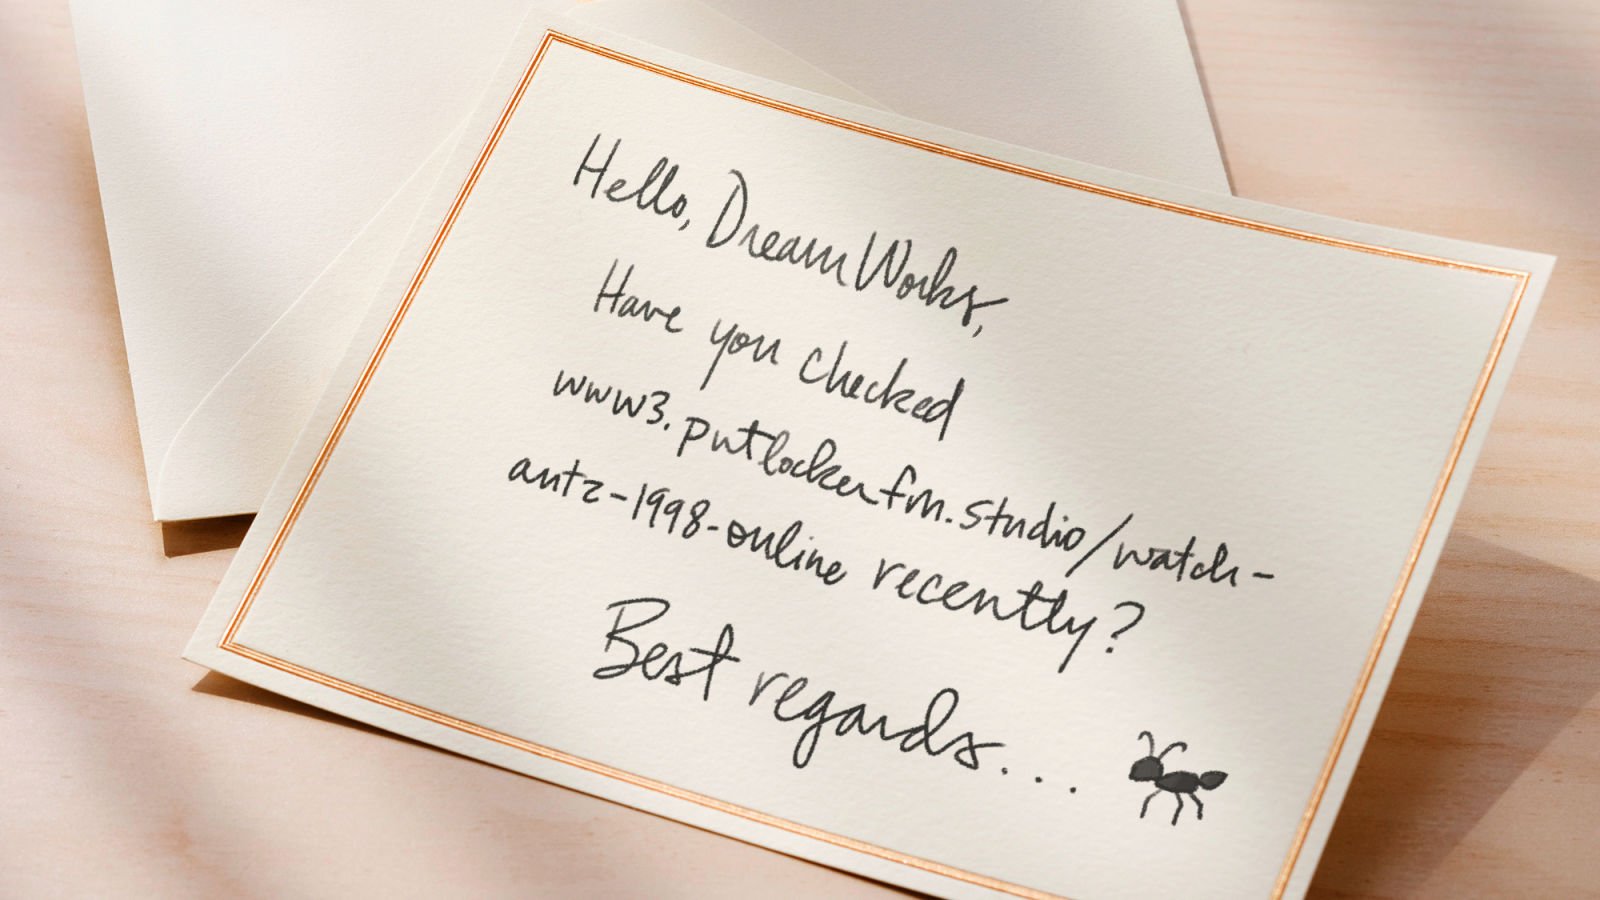 Hello, DreamWorks,
Have you checked
www3.putlockerfm.studio/watch-
antz-1998-online recently?
Best regards...